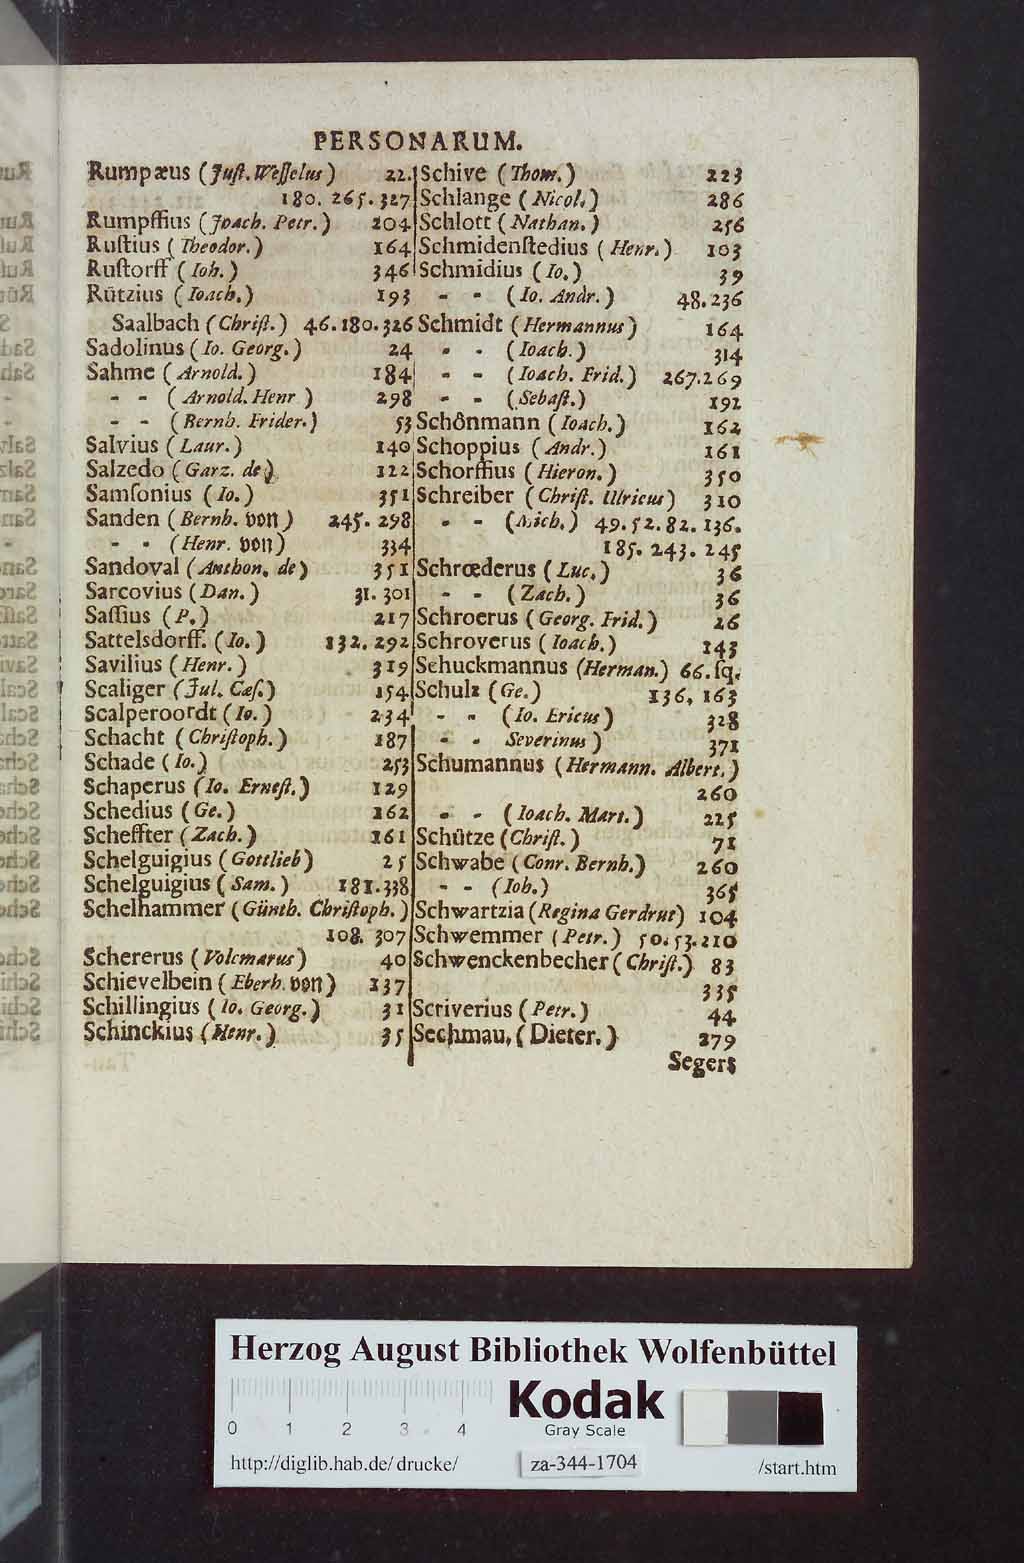 PERSONARUM.
Rumpæus (Juſt. Weſſelus) 22.
180. 265. 327
Rumpffius (Joach. Petr.) 204
Ruſtius (Theodor.) 164
Ruſtorff (Ioh.) 346
Rützius (Ioach.) 193
Saalbach (Chriſt.) 46. 180. 326
Sadolinus (Io. Georg.) 24
Sahme (Arnold.) 184
- - (Arnold. Henr ) 298
- - (Bernh. Frider.) 53
Salvius (Laur.) 140
Salzedo (Garz. de) 122
Samſonius (Io.) 351
Sanden (Bernh. von) 245. 298
- - (Henr. von) 334
Sandoval (Anthon. de) 351
Sarcovius (Dan.) 31. 301
Saſſius (P.) 217
Sattelsdorff. (Io.) 132. 292
Savilius (Henr.) 319
Scaliger (Jul. Cæſ.) 154
Scalperoordt (Io.) 234
Schacht (Chriſtoph.) 187
Schade (Io.) 253
Schaperus (Io. Erneſt.) 129
Schedius (Ge.) 162
Scheffter (Zach.) 161
Schelguigius (Gottlieb) 25
Schelguigius (Sam.) 181. 338
Schelhammer (Günth. Chriſtoph.)
108. 307
Schererus (Volcmarus) 40
Schievelbein (Eberh. von) 137
Schillingius (Io. Georg.) 31
Schinckius (Henr.) 35
Schive (Thom.) 223
Schlange (Nicol.) 286
Schlott (Nathan.) 256
Schmidenſtedius (Henr.) 103
Schmidius (Io.) 39
- - (Io. Andr.) 48. 236
Schmidt (Hermannus) 164
- - (Ioach.) 314
- - (Ioach. Frid.) 267. 269
- - (Sebaſt.) 192
Schônmann (Ioach.) 162
Schoppius (Andr.) 161
Schorffius (Hieron.) 350
Schreiber (Chriſt. Ulricus) 310
- - (Mich.) 49. 52. 82. 136.
185. 243. 245
Schrœderus (Luc.) 36
- - (Zach.) 36
Schroerus (Georg. Frid.) 26
Schroverus (Ioach.) 143
Schuckmannus (Herman.) 66. ſq.
Schulz (Ge.) 136, 163
- - (Io. Ericus) 328
- - Severinus) 371
Schumannus (Hermann. Albert.)
260
- - (Ioach. Mart.) 225
Schütze (Chriſt.) 71
Schwabe (Conr. Bernh.) 260
- - (Ioh.) 365
Schwartzia (Regina Gerdrut) 104
Schwemmer (Petr.) 50. 53. 210
Schwenckenbecher (Chriſt.) 83
335
Scriverius (Petr.) 44
Sechmau, (Dieter.) 279
Segers
Herzog August Bibliothek Wolfenbüttel
Kodak
Gray Scale
0 1 2 3 4
http://diglib.hab.de/drucke/ za-344-1704 /start.htm